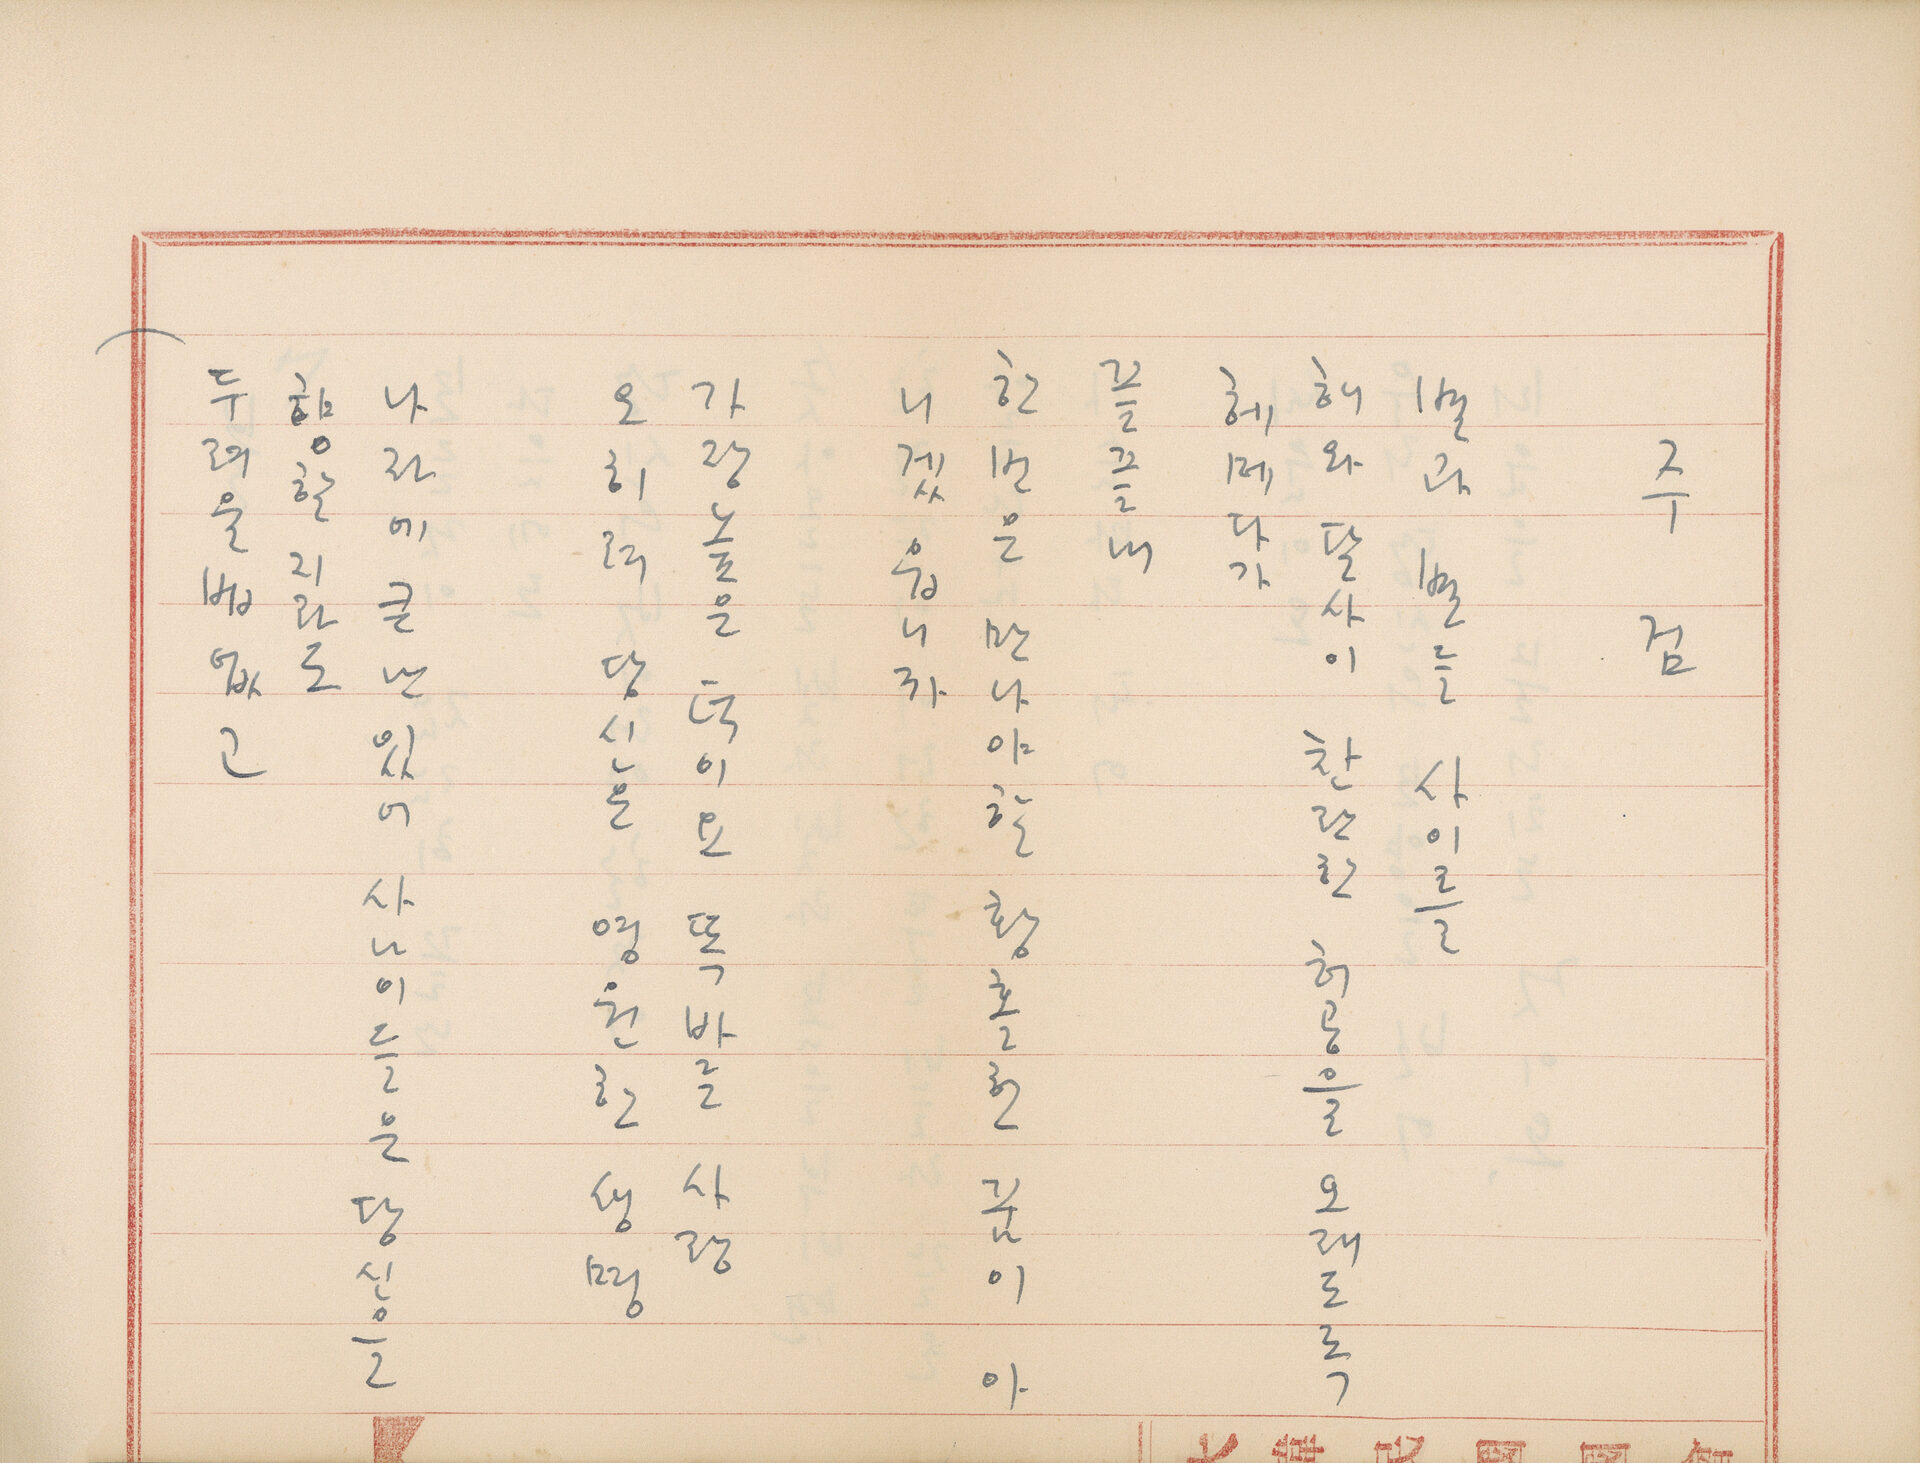 주 검
별과 별들 사이를
해와 달사이 찬란한 허공을 오래도록
헤메다가
끝끝내
한번은 만나야할 황홀한 꿈이 아
니겠읍니까
가장높은 덕이요 똑바른 사랑
오히려 당신은 영원한 생명
나라에 큰난 있어 사나이들은 당신을
향할지라도
두려울법 없고